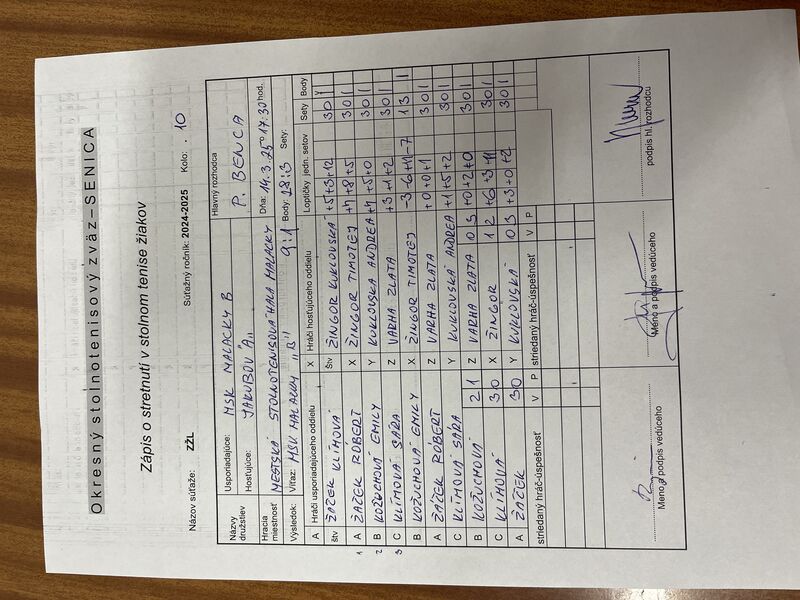 Okresný stolnotenisový zväz–SENICA
Zápis o stretnutí v stolnom tenise žiakov
Názov súťaže: ZŽL Súťažný ročník: 2024-2025 Kolo: . 10
Názvy družstiev Usporiadajúce: MSK MALACKY B Hlavný rozhodca
Hostujúce: JAKUBOV "A" P. BENCA
Hracia miestnosť MESTSKÁ STOLNOTENISOVÁ HALA MALACKY Dňa: 14.3.25 17:30 hod.
Výsledok: Víťaz: MŠK MALACKY "B" 9:1 Body: 28:3 Sety:
A Hráči usporiadajúceho oddielu X Hráči hosťujúceho oddielu Loptičky jedn. setov Sety Body
štv ŽAČEK KLÍMOVÁ štv ŽINGOR KUKLOVSKÁ +5+3+12 30 1
1 A ŽAČEK RÓBERT X ŽINGOR TIMOTEJ +7+8+5 30 1
2 B KOŽUCHOVÁ EMILY Y KUKLOVSKÁ ANDREA +7+5+0 30 1
3 C KLÍMOVÁ SÁRA Z VARHA ZLATA +3+1+2 30 1
B KOŽUCHOVÁ EMILY X ŽINGOR TIMOTEJ -3-6+11-7 13 1
A ŽAČEK RÓBERT Z VARHA ZLATA +0+0+1 30 1
C KLÍMOVÁ SÁRA Y KUKLOVSKÁ ANDREA +1+5+2 30 1
B KOŽUCHOVÁ 21 Z VARHA ZLATA 03 +0+2+0 30 1
C KLÍMOVÁ 30 X ŽINGOR 12 +6+3+11 30 1
A ŽAČEK 30 Y KUKLOVSKÁ 03 +3+0+2 30 1
striedaný hráč-úspešnosť V P striedaný hráč-úspešnosť V P
Meno a podpis vedúceho Meno a podpis vedúceho podpis hl. rozhodcu